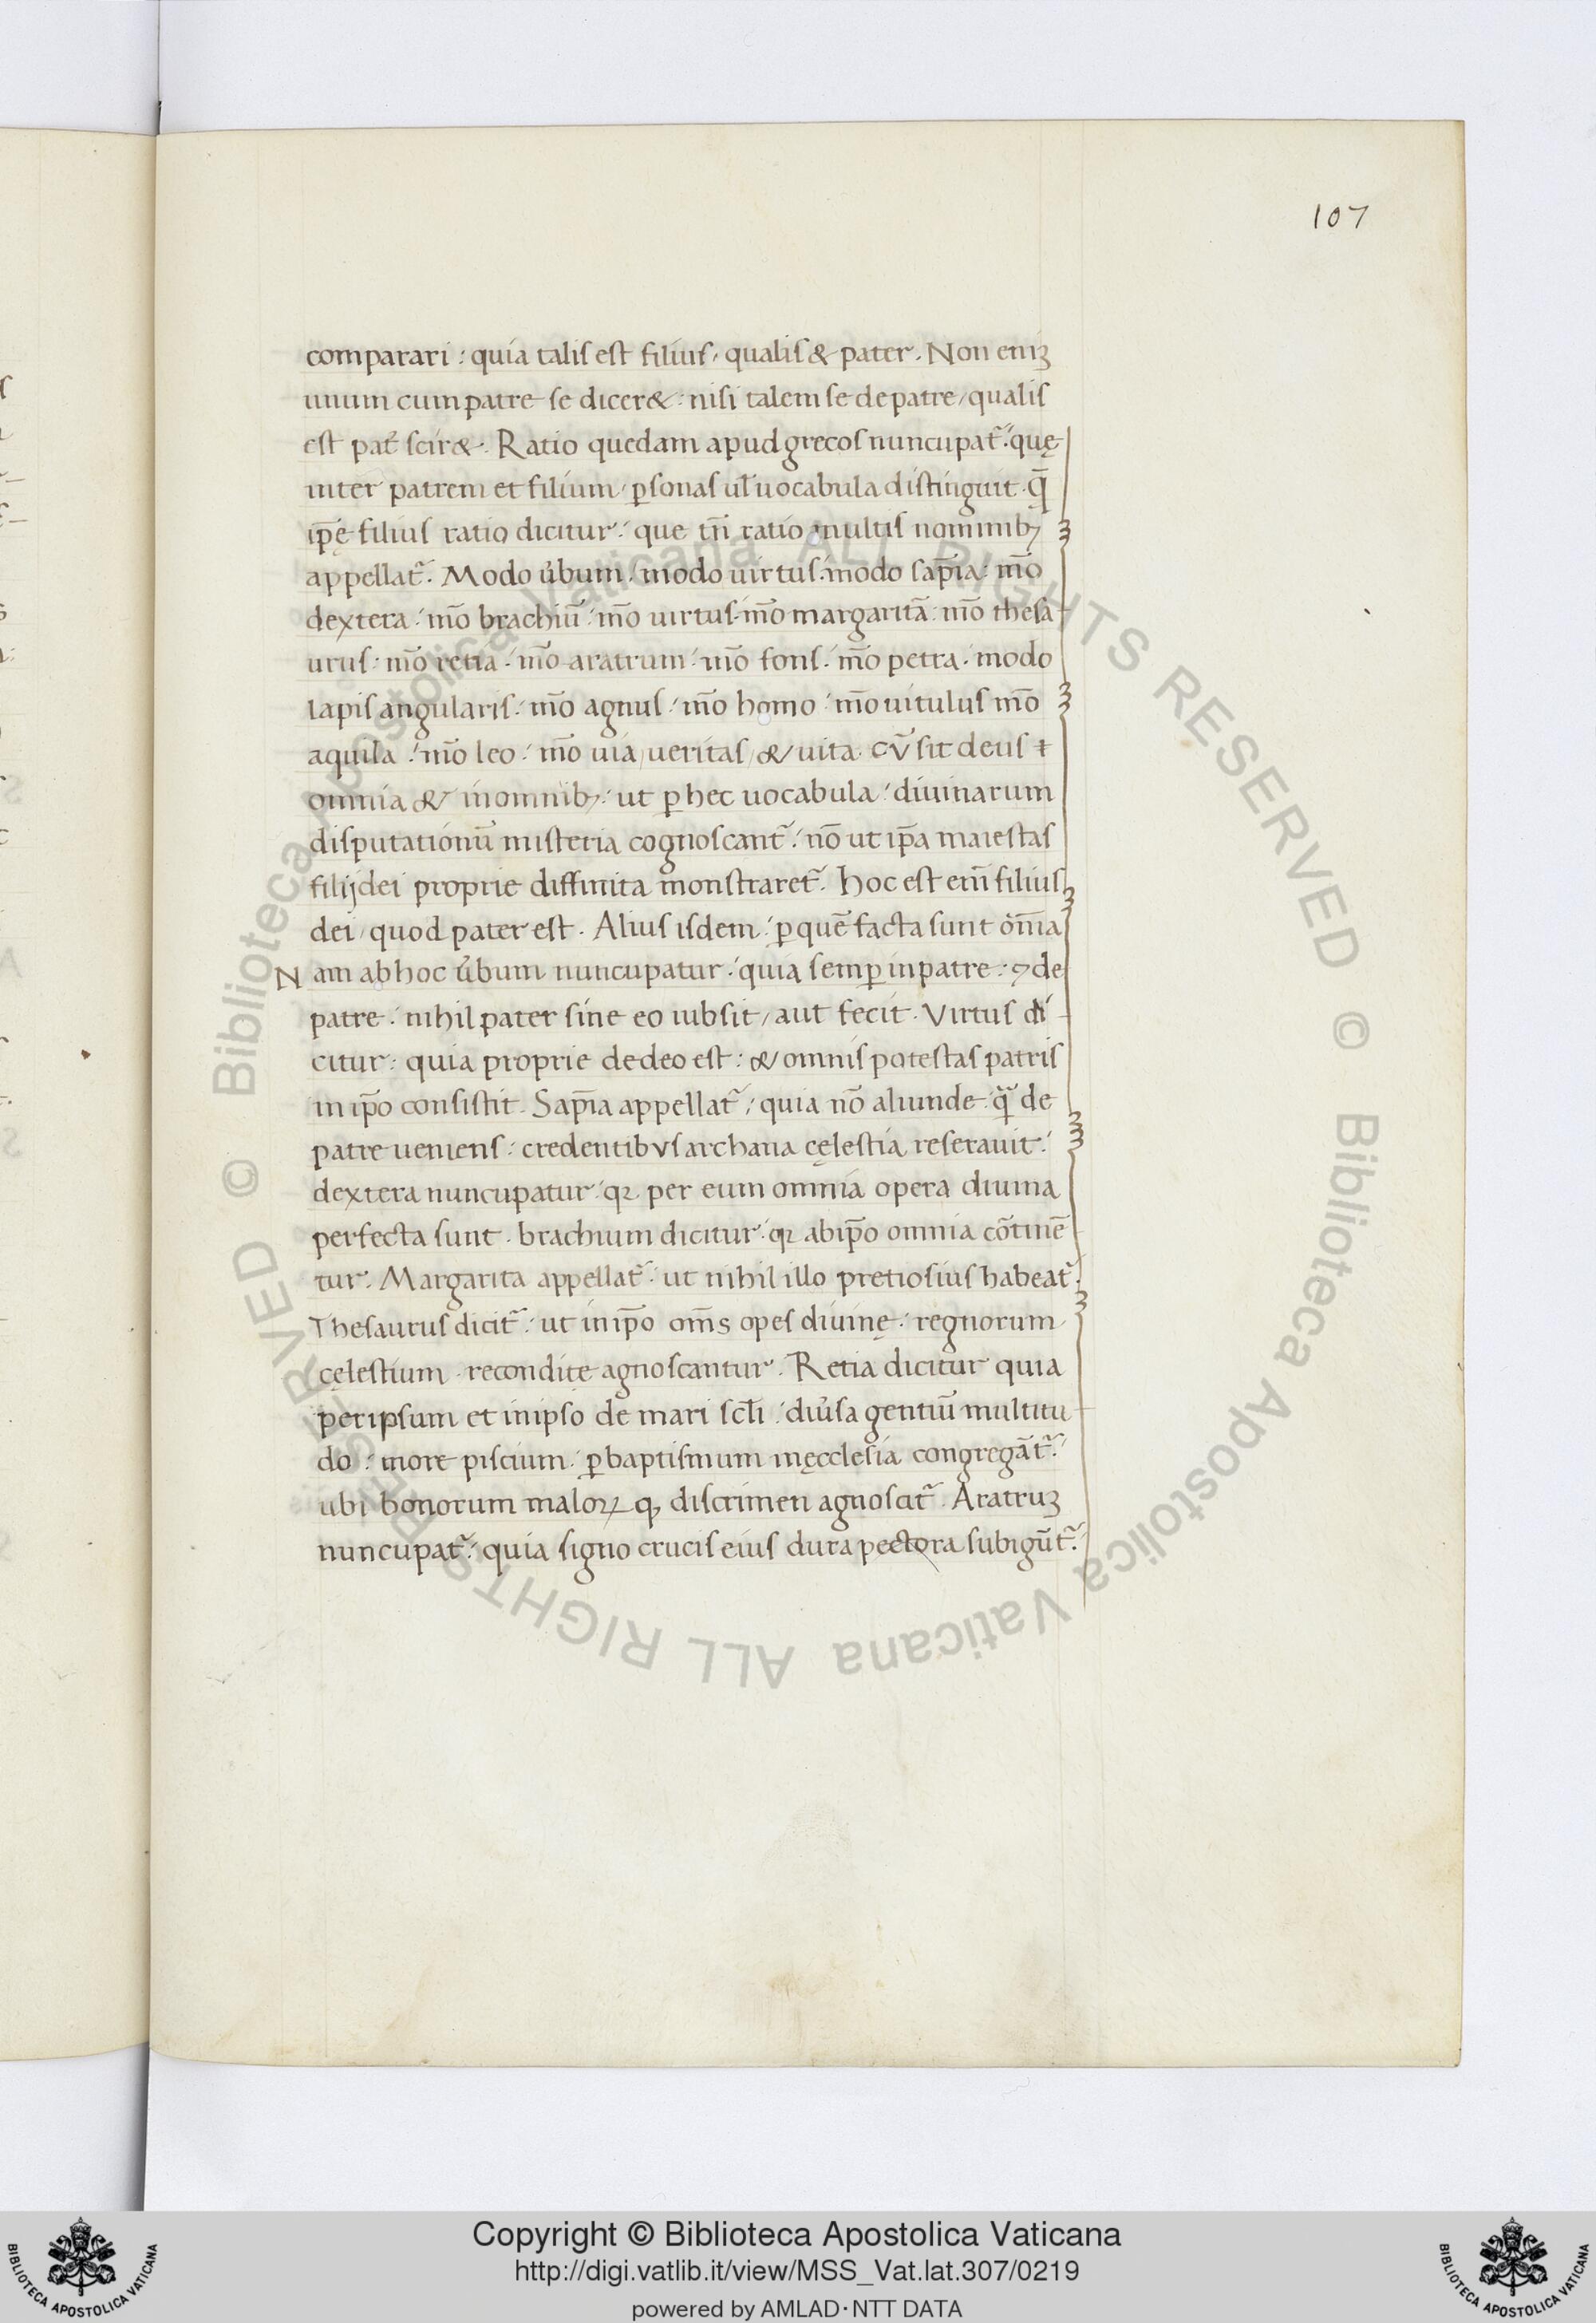 107
comparari : quia talis est filius, qualis & pater. Non eniꝫ
unum cum patre se dicer& : nisi talem se de patre, qualis
est pat̄ scir&. Ratio quedam apud grecos nuncupat᷑. quę
inter patrem et filium, ꝑsonas ul̄ uocabula distinguit. q̄
ip̄ę filius ratio dicitur : que tn̄ ratio multis nominibꝫ
appellat᷑. Modo u̓bum, modo uirtus. modo sap̄ia : mō
dextera : mō brachiū : mō uirtus. mō margaritā : mō thesa
urus : mō retia : mō aratrum : mō fons : mō petra. modo
lapis angularis : mō agnus : mō homo : mō uitulus mō
aquila : mō leo : mō uia, ueritas, & uita. cv̄ sit deus ɫ
omnia & in omnibꝫ : ut ꝑ hec uocabula : diuinarum
disputationū misteria cognoscant᷑ : nō ut ip̄a maiestas
filij dei proprie diffinita monstraret᷑. hoc est enī filius
dei, quod pater est. Alius isdem : ꝑ quē facta sunt om̄ia
Nam ab hoc u̓bum nuncupatur : quia semꝑ in patre : ⁊ de
patre : nihil pater sine eo iubsit, aut fecit. Virtus di
citur : quia proprie de deo est : & omnis potestas patris
in ip̄o consistit. Sap̄ia appellat᷑ : quia nō aliunde. q̄ de
patre ueniens : credentibvs archana cęlestia reserauit :
dextera nuncupatur : qꝛ per eum omnia opera diuina
perfecta sunt. brachium dicitur : qꝛ ab ip̄o omnia cōtinē
tur. Margarita appellat᷑ : ut nihil illo pretiosius habeat᷑.
Thesaurus dicit᷑ : ut in ip̄o om̄s opes diuinę : regnorum
cęlestium. recondite agnoscantur. Retia dicitur quia
per ipsum et in ipso de mari scl̄i : diu̓sa gentiū multitu
do : more piscium. ꝑ baptismum in ęcclesia congregāt᷑.
ubi bonorum maloꝝ qꝫ discrimen agnoscit᷑. Aratruꝫ
nuncupat᷑ : quia signo crucis eius dura pectora subigūt᷑.
© Biblioteca Apostolica Vaticana ALL RIGHTS RESERVED © Biblioteca Apostolica Vaticana ALL RIGHTS RESERVED
Copyright © Biblioteca Apostolica Vaticana
http://digi.vatlib.it/view/MSS_Vat.lat.307/0219
powered by AMLAD·NTT DATA
BIBLIOTECA APOSTOLICA VATICANA
BIBLIOTECA APOSTOLICA VATICANA